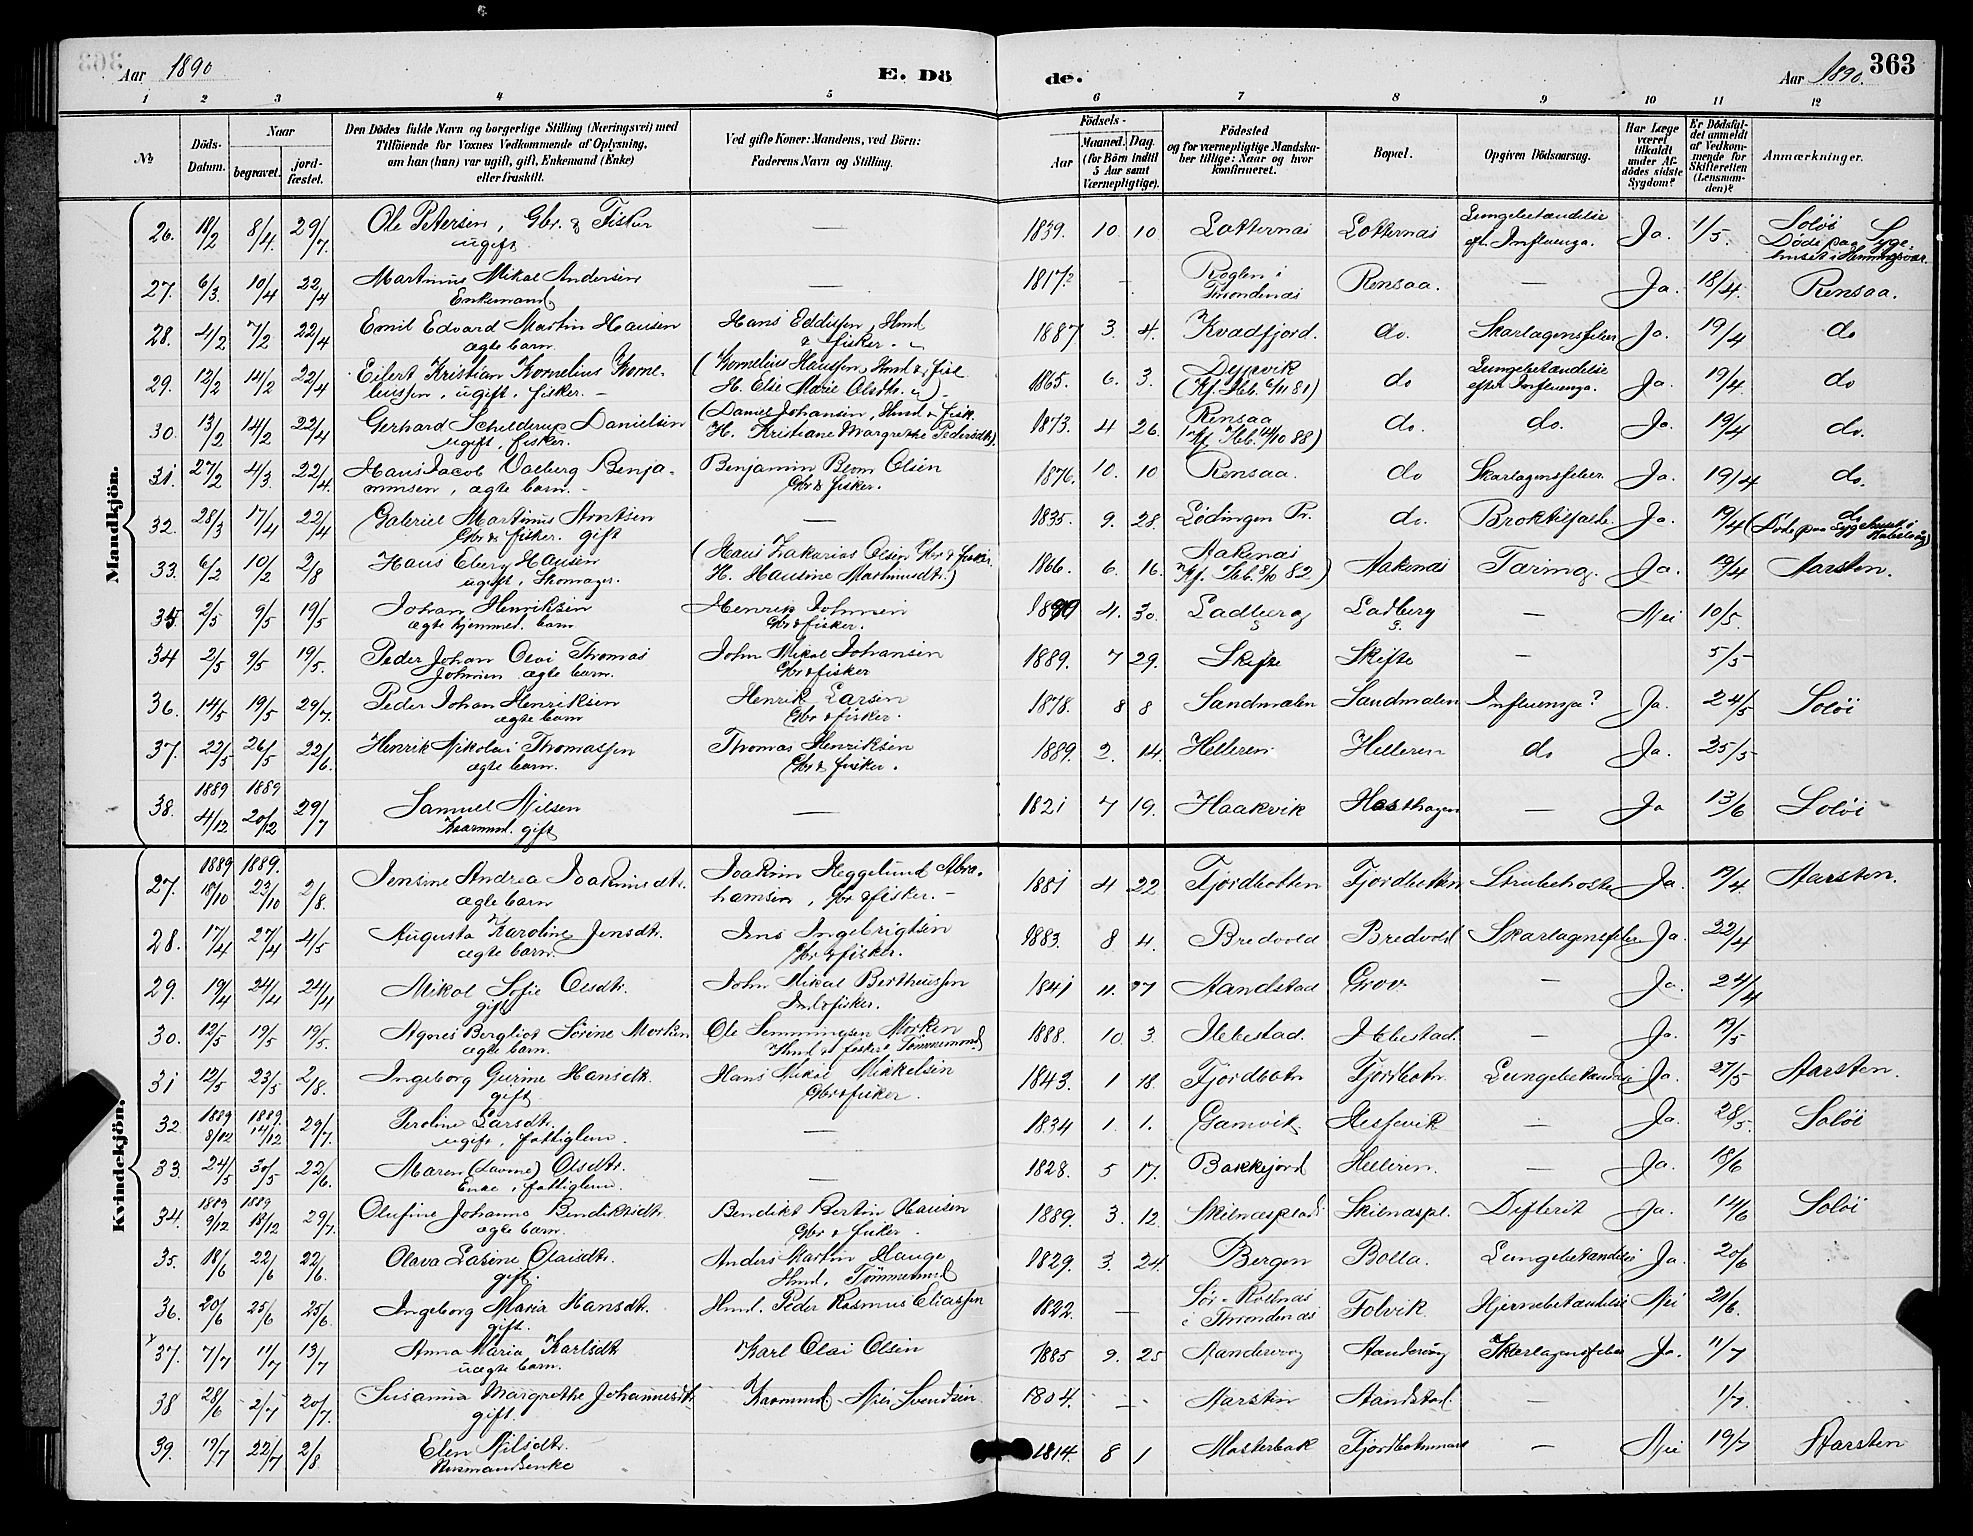 Aar 1890 E. Dö de. Aar 1890. 363
1 2 3 4 5 6 7 8 9 10 11 12
No
Döds-Datum.
Naar
begravet.
jord-fæstet.
Den Dödes fulde Navn og borgerlige Stilling (Næringsvei) med
Tilföiende for Voxnes Vedkommende af Oplysning,
om han (hun) var ugift, gift, Enkemand (Enke)
eller fraskilt.
Ved gifte Koner: Mandens, ved Börn:
Faderens Navn og Stilling.
Födsels-
Aar
Maaned.
Dag.
(for Børn indtil
5 Aar samt
Værnepligtige).
Födested
og for værnepligtige Mandska-
ber tillige: Naar og hvor
konfirmeret.
Bopæl.
Opgiven Dödsaarsag.
Har Læge
været
tilkaldt
under Af-
dödes sidste
Sygdom?
Er Dödsfal-
det anmeldt
af Vedkom-
mende for
Skifteretten
(Lensman-
den)?
Anmærkninger.
Mandkjön.
26. 18/2 8/4. 29/7. Ole Petersen, Gbr. & Fisker — 1839. 10 10. Lotternæs Lotternæs Lungebetændelse Ja. 1/5. Soløi
ugift eft. Influenza. Døde paa Syge-
huset i Henningsvær
27. 6/3. 10/4 22/4 Martinus Mikal Andersen — 1817? — Røglen i Rensaa. — Ja. 18/4. Rensaa.
Enkemand Trondenæs
28. 4/2 7/2 22/4 Emil Edvard Martin Hansen Hans Eddisen, Hmd 1887 3. 4. Kvædfjord. do. Skarlagensfeber Ja. 19/4 do
ægte barn. & fisker.
29. 12/2 14/2 22/4 Eilert Kristian Kornelius Korne- (Kornelius Hansen, Hmd & fisk 1865. 6. 3. Dyrvik do Lungebetændelse Ja. 19/4. do
liussen, ugift, fisker. H. Else Marie Olsdtr.) (Kf. Ibb. 6/11 81) efter Influenza.
30. 13/2 14/2 22/4 Gerhard Schilderup Danielsen (Daniel Johansen, Hmd & fisk. 1873. 4 26. Rensaa do. do. Ja. 19/4 do.
ugift, fisker. H. Kristiane Margrethe Pedersdtr.) (Kf. Ibb. 14/10 88)
31. 27/2 4/3. 22/4. Hans Jacob Valberg Benja- Benjamin Blom Olsen 1876. 10. 10 Rensaa. do Skarlagensfeber Ja. 19/4 do.
minsen, ægte barn. Gbr & fisker.
32. 28/3 17/4 22/4 Gabriel Martinus Arntsen — 1835. 9. 28. Lødingen Pr. do. Broktilfælde. Ja. 19/4 do
Gbr & fisker. gift (Døde paa Sygehuset i Kabelvaag)
33. 6/2 10/2 2/8 Hans Eberg Hansen (Hans Zakarias Olsen Gbr & fisker 1866. 6. 16. Aakenæs Aakenæs Ja. 19/4 Aarsten.
ugift, Skomager. H. Hansine Martinusdtr.) Kf. Ibb. 8/10 82)
35 2/5 9/5 19/5 Johan Henriksen Henrik Johnsen 1890 4. 30. Ladberg Ladberg — Nei 10/5.
ægte hjemmed. barn Gbr & fisker.
34 2/5 9/5 19/5. Peder Johan Olai Thomas John Mikal Johansen 1889. 7 29. Skifte Skifte — 5/5
Johnsen ægte barn. Gbr & fisker
36. 14/5 19/5 29/7. Peder Johan Henriksen Henrik Larsen 1878. 8 8 Sandmælen Sandmælen Influenza? Ja. 24/5 Soløi
ægte barn Gbr & fisker.
37. 22/5 26/5 22/6. Henrik Nikolai Thomassen Thomas Henriksen 1889. 2. 14. Helleren Helleren do Ja. 25/5
ægte barn. Gbr & fisker.
38. 1889 4/12 1889 20/12 29/7 Samuel Nilsen — 1821 7 19. Haakvik — Ja 13/6 Soløi
Kaarmd. gift
Kvindekjön.
27. 1889 18/10 1889. 23/10 2/8. Jensine Andrea Joakimsdtr. Joakim Heggelund Abra- 1881 4 22. Fjordbotten Fjordbotten Strubehoste Ja. 19/4 Aarsten.
ægte barn hamsen, Gbr & fisker.
28. 17/4 27/4 4/5 Augusta Karoline Jensdtr. Jens Ingebrigtsen 1883. 8 4. Bredvold Bredvold Skarlagensfeber Ja. 22/4
ægte barn. Gbr & fisker.
29. 19/4 24/4 24/4 Mikal Sofie Olsdtr. John Mikal Bertheussen 1841 11. 27 Aandstad Grov — Ja. 24/4
gift & fisker.
30. 12/5 19/5 19/5. Agnes Bergliot Sørine Morken Ole Semmingsen Morken 1888. 10 3. Ibbestad. Ibbestad. — Ja. 19/5
ægte barn. Hmd & fisker Tømmermand
31 12/5 23/5 2/8. Ingeborg Gurine Hansdtr. Hans Mikal Mikkelsen 1843. 1 18. Fjordbotn Fjordbotn Lungebetændelse Ja. 27/5 Aarsten.
gift Gbr & fisker.
32. 1889 8/12 1889. 14/12 29/7. Peroline Larsdtr. — 1834 1. 1. Gamvik Hesjevik — Ja. 28/5. Soløi
ugift, fattiglem.
33. 24/5 30/5 22/6. Maren (Lavine) Olsdtr. — 1828. 5 17. Bakkejord Helleren. — Ja. 18/6
Enke, fattiglem.
34. 1889 9/12 1889 18/12 29/7 Olufine Johanna Bendiksdtr. Bendikt Bertin Hansen 1889. 3. 12. Skilnæsplad. Skilnæspl. Difterit Ja. 14/6 Soløi
ægte barn. Gbr & fisker.
35. 18/6 22/6 22/6. Olava Lasine Olaisdtr. Anders Martin Hauge 1829. 3. 24. Bergen Bolla. Lungebetændelse Ja. 20/6
gift. Hmd, Tømmermd
36. 20/6 25/6 25/6. Ingeborg Maria Hansdtr. Hmd. Peder Rasmus Eliassen 1822. — Sør-Rollnæs Folvik. Hjernebetændelse Nei 21/6.
gift. i Throndenæs
37. 7/7 11/7 13/7 Anna Maria Karlsdtr Karl Olai Olsen 1885 9. 25 Aandervag Aandervåg Skarlagensfeber Ja. 11/7
uægte barn.
38 28/6 2/7 20/7. Susanna Margrethe Johannesdtr. Kaarmand. Nils Svendsen 1804. — Aarsten Aandstad. — 1/7.
gift.
39. 19/7 22/7 2/8 Elen Nilsdtr. 1814. 8 1 Mosterbak — Nei 19/7 Aarsten
Husmandsenke